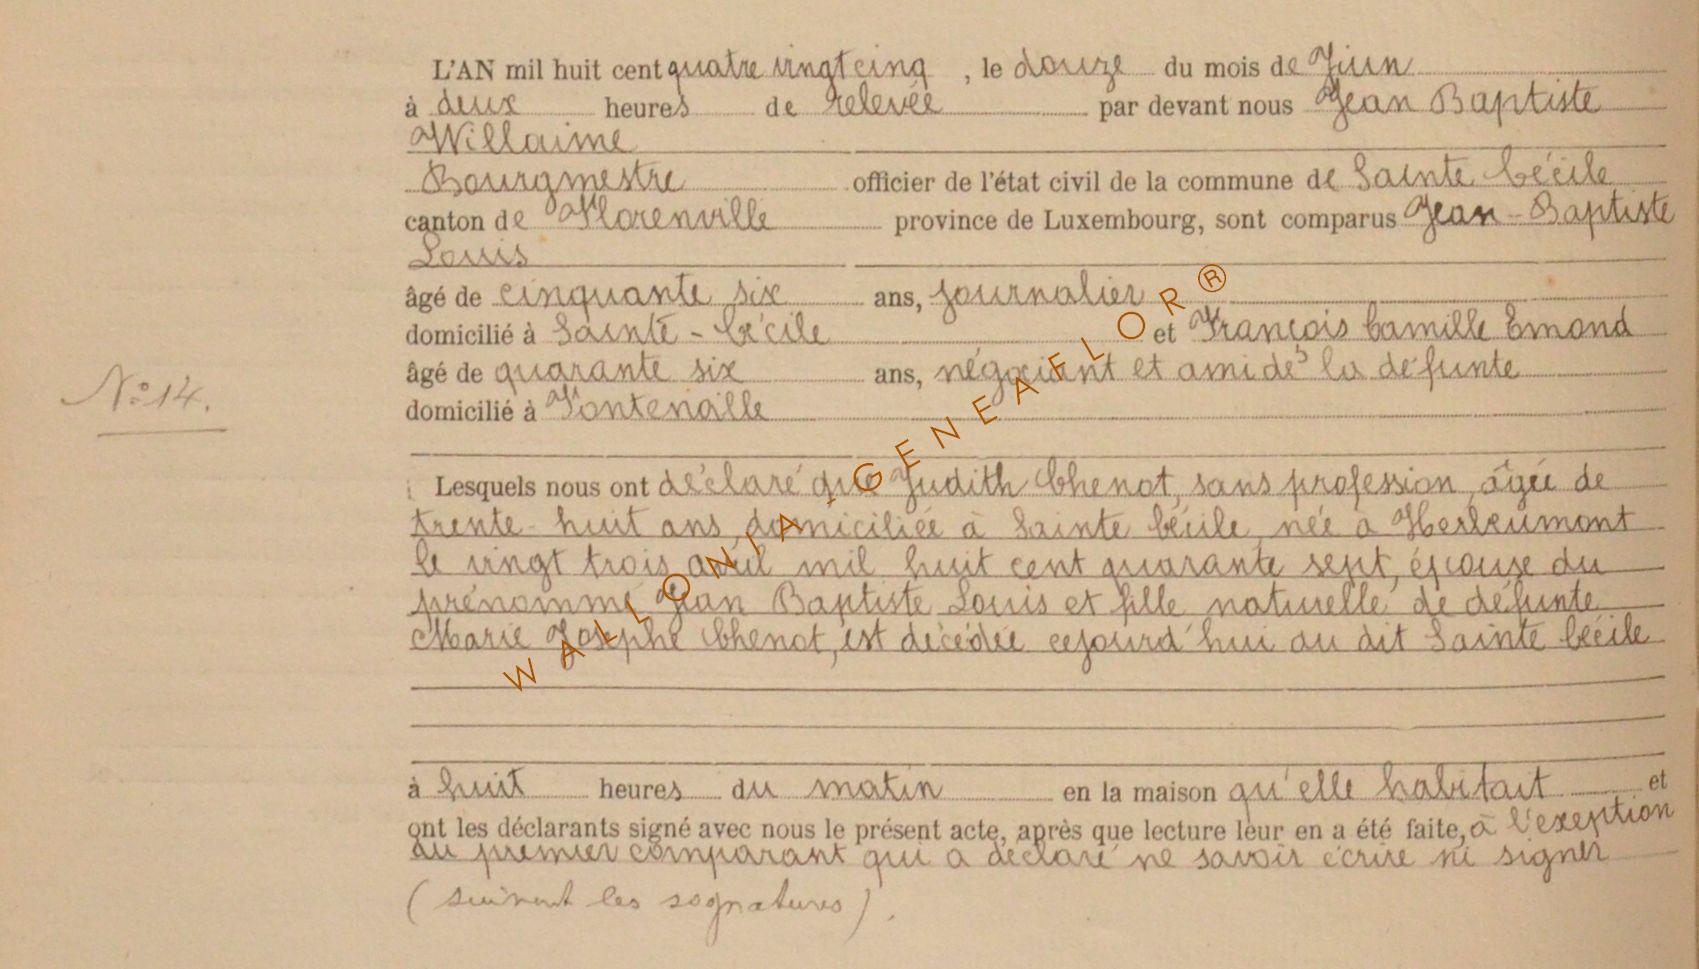 L'AN mil huit cent quatre vingt cinq, le douze du mois de Juin
à deux heures de relevée par devant nous Jean Baptiste
Willaime
Bourgmestre officier de l'état civil de la commune de Sainte Cécile
canton de Florenville province de Luxembourg, sont comparus Jean-Baptiste
Louis
âgé de cinquante six ans, journalier
domicilié à Sainte-Cécile et François Camille Emond
âgé de quarante six ans, négociant et ami de la défunte
domicilié à Fontenoille
N° 14.
Lesquels nous ont déclaré que Judith Chenot, sans profession, âgée de
trente-huit ans, domiciliée à Sainte Cécile, née à Herbeumont
le vingt trois avril mil huit cent quarante sept, épouse du
prénommé Jean Baptiste Louis et fille naturelle de défunte
Marie Josephe Chenot, est décédée cejourd'hui au dit Sainte Cécile
à huit heures du matin en la maison qu'elle habitait et
ont les déclarants signé avec nous le présent acte, après que lecture leur en a été faite, à l'exeption
du premier comparant qui a déclaré ne savoir écrire ni signer
(suivent les signatures).
WALLONIA-GENEAFLOR®